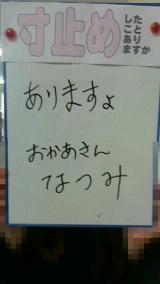 寸止め
したこと
あります
か
ありますょ
おかあさん
なつみ